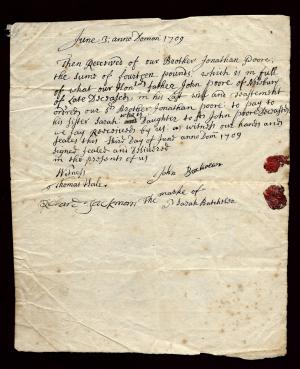 June 3: anno Domon 1709
Then Received of our Brother Jonathan Poore
the sume of fourteen pounds which is in full
of what our Honrd father John poore of Newbury
of Late Deceased, in his Last will and testement
ordred our sd Brother Jonathan poore to pay to
his sister Sarah who is Daughter to sd John poore Deceased
we say Received by us, as witness our hands and
seales this third Day of June anno Dom 1709
signed sealed and Delivered
in the presents of us
Witness
John
Thomas Hale
Jackmon The marke of
Sarah Batchelder